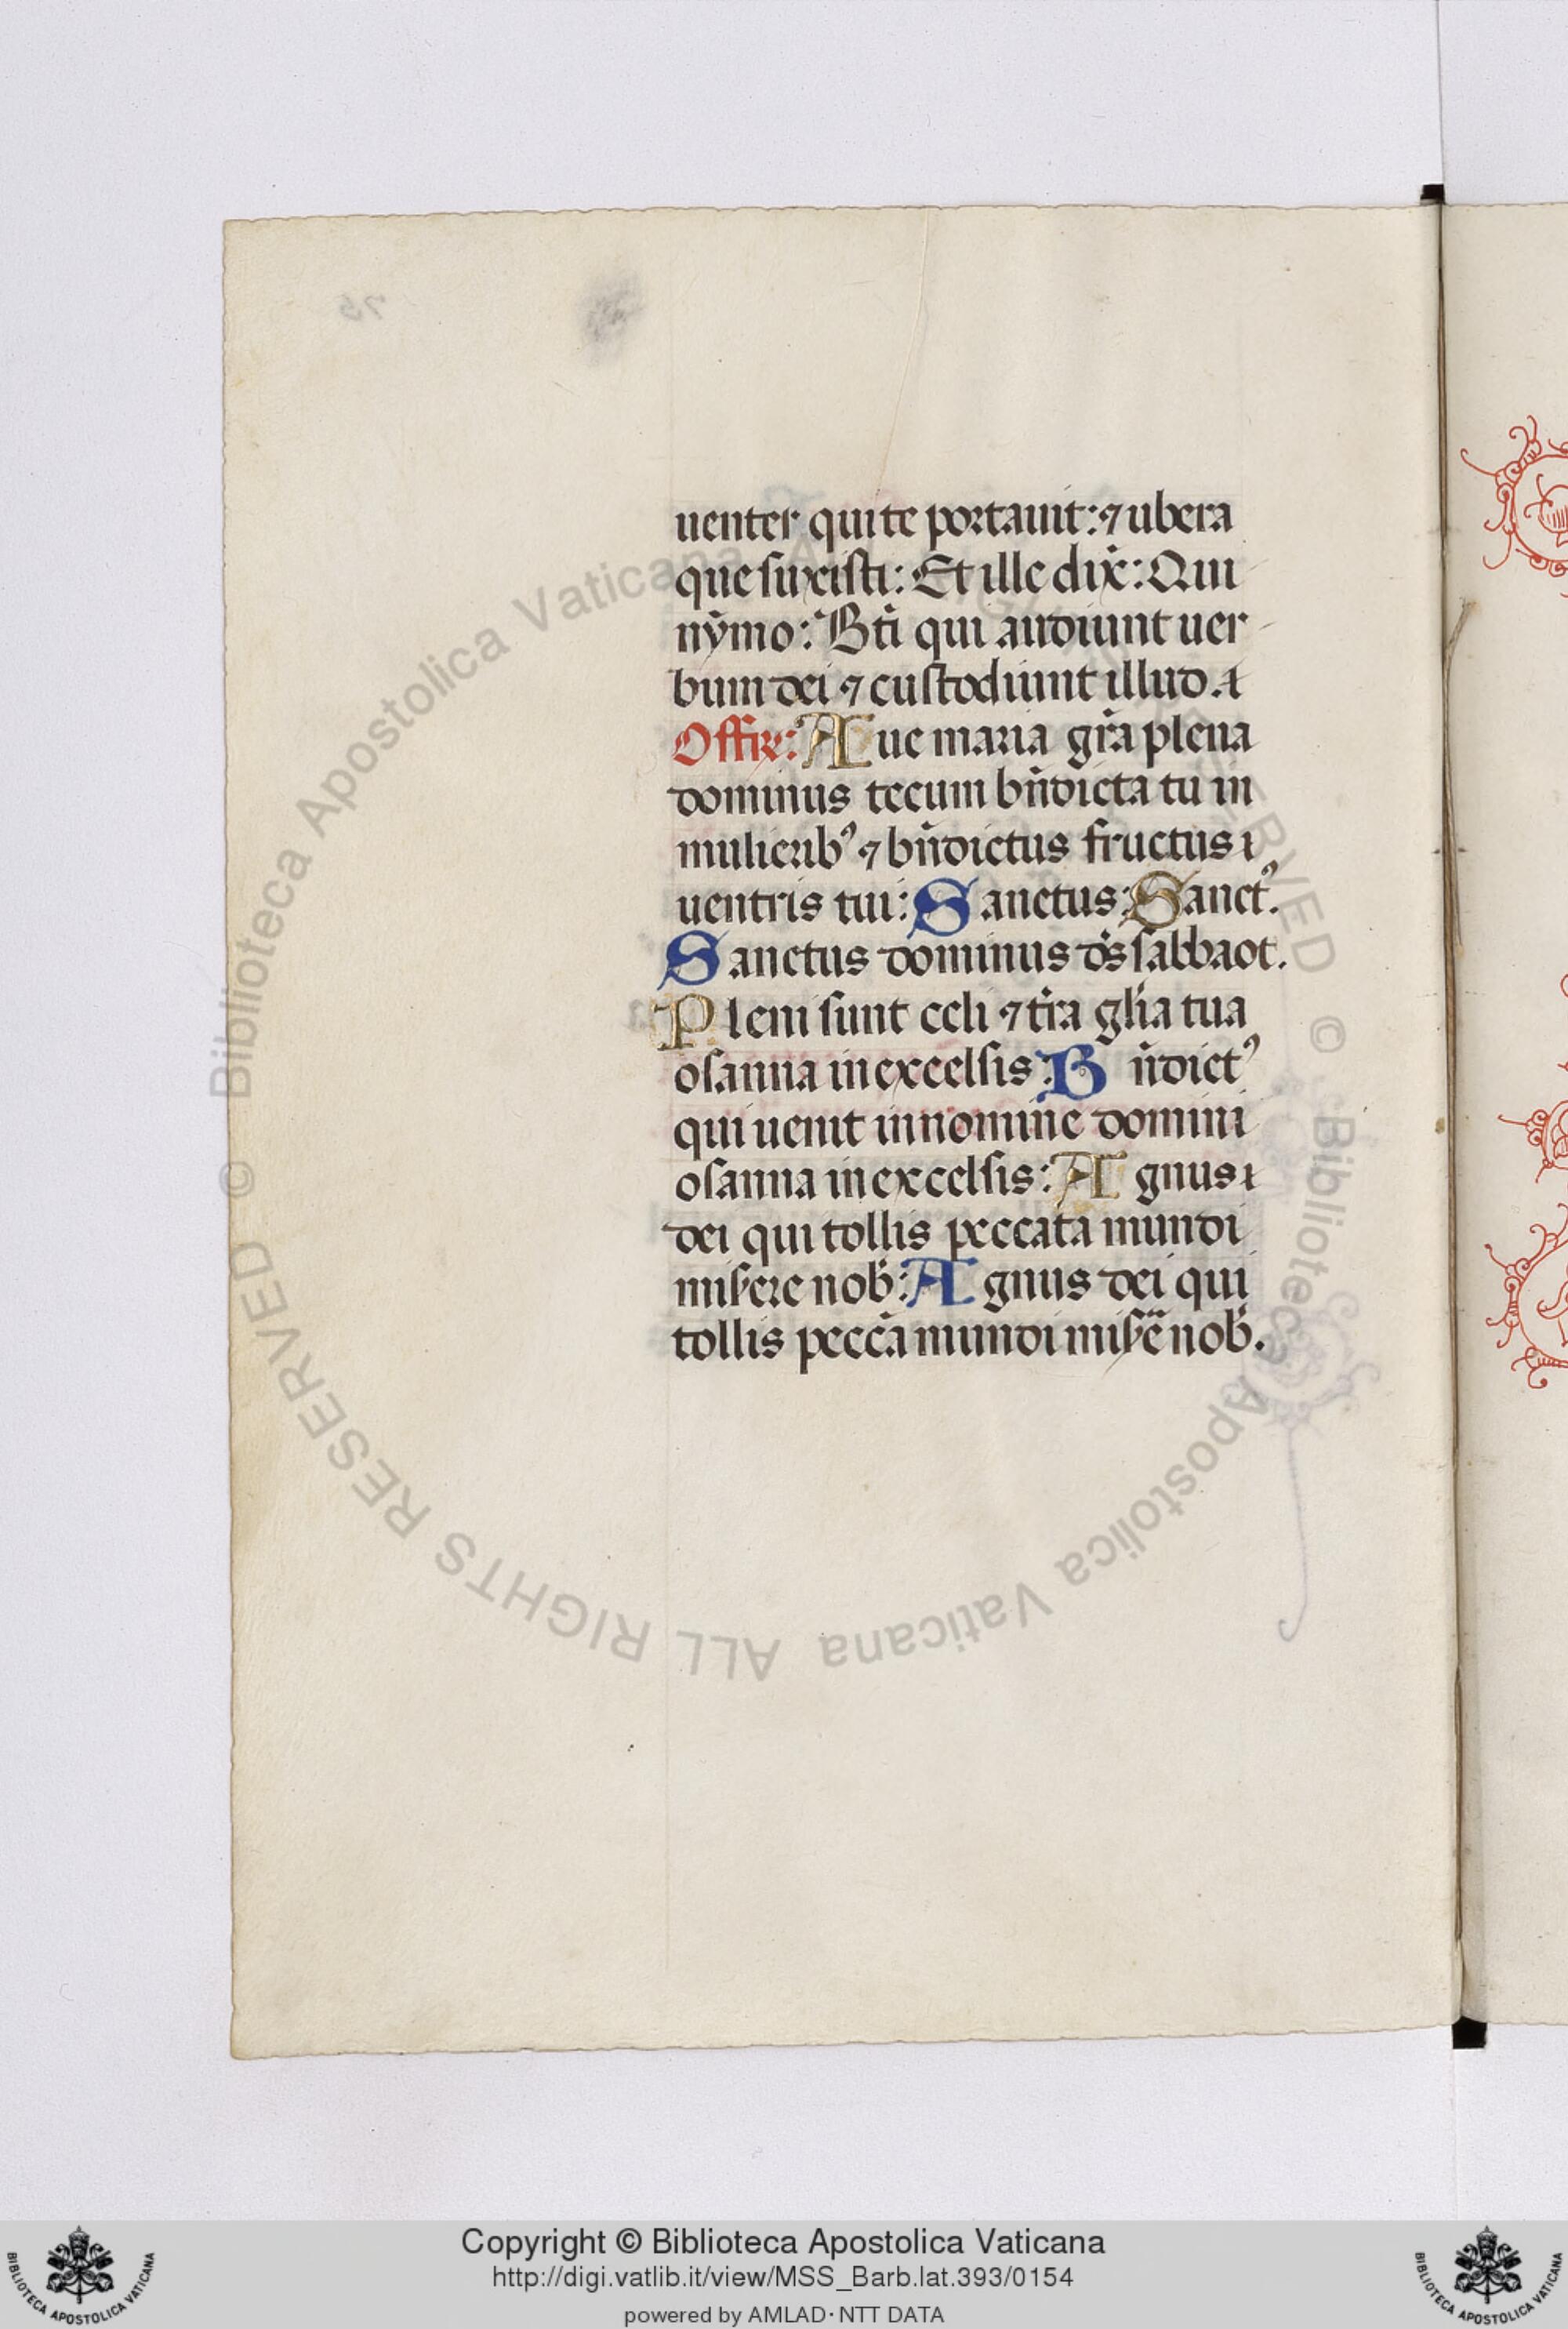 uenter qui te portauit: ⁊ ubera
que suxisti: Et ille dix̄: Qui
nȳmo: Bt̄i qui audiunt uer
bum dei ⁊ custodiunt illud. ı
Offr̄e: Aue maria gr̄a plena
dominus tecum bn̄dicta tu in
mulierib⁹ ⁊ bn̄dictus fructus ı
uentris tui: Sanctus: Sanct⁹.
Sanctus dominus ds̄ sabbaot.
Pleni sunt celi ⁊ tr̄a gl̄ia tua
osanna in excelsis: Bn̄dict⁹
qui uenit in nomine domini
osanna in excelsis: Agnus ı
dei qui tollis peccata mundi
mis̄ere nob̄: Agnus dei qui
tollis pecc̄a mundi mis̄e nob̄.
© Biblioteca Apostolica Vaticana ALL RIGHTS RESERVED © Biblioteca Apostolica Vaticana ALL RIGHTS RESERVED
Copyright © Biblioteca Apostolica Vaticana
http://digi.vatlib.it/view/MSS_Barb.lat.393/0154
powered by AMLAD · NTT DATA
BIBLIOTECA APOSTOLICA VATICANA
BIBLIOTECA APOSTOLICA VATICANA